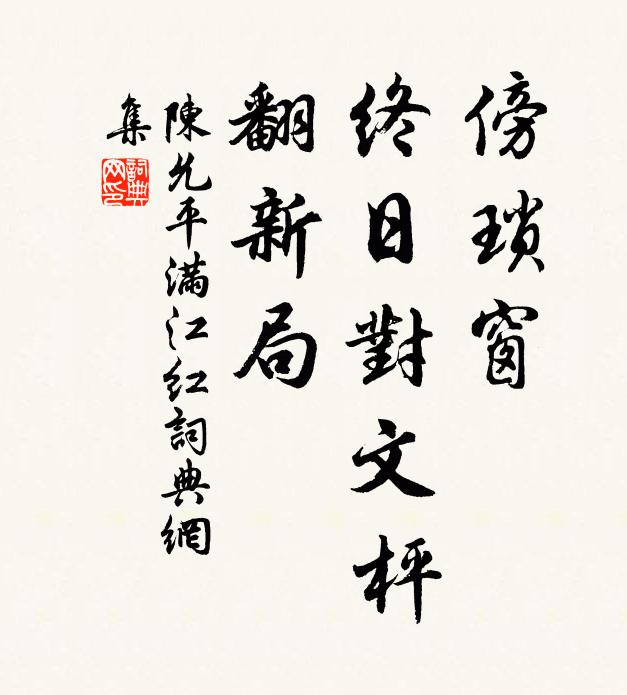 傍瑣窗
終日對文枰
翻新局
陳允平滿江紅詞典網
集
詞典
网印